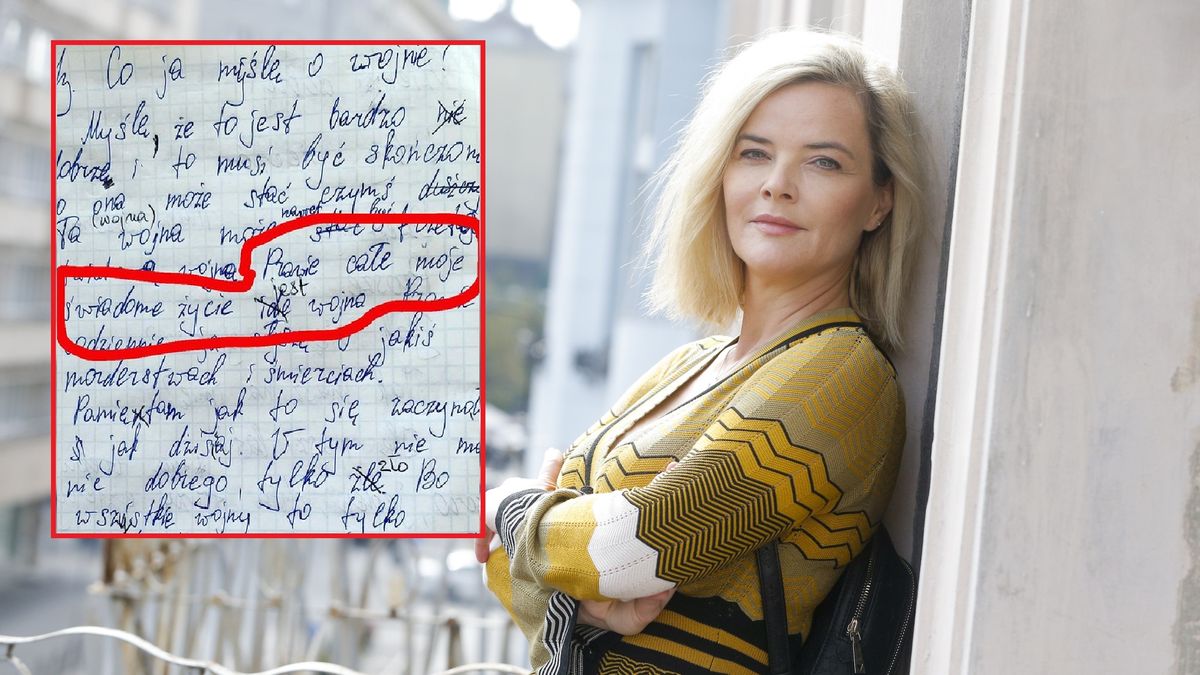 Co ja myślę o wojnie?
Myślę, że to jest bardzo nie
dobrze i to musi być skończon
ona może stać czymś
(wojna) nawet
Ta wojna może być
wojna Prawie całe moje
jest
świadome życie wojna
codziennie jakiś
morderstwach i śmierciach.
Pamiętam jak to się zaczynał
jak dzisiaj. W tym nie ma
nic dobrego, tylko zło Bo
wszystkie wojny to tylko